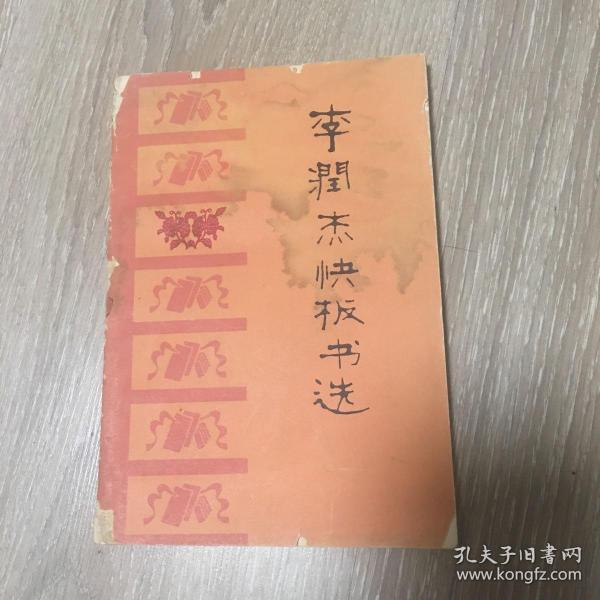 李潤杰快板书选
孔夫子旧書网
www.kongfz.com